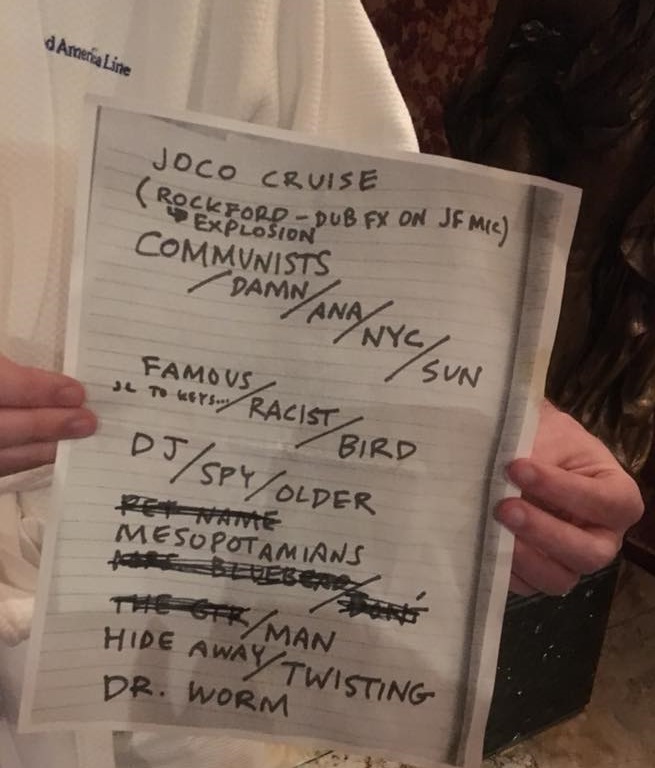 d America Line
JOCO CRUISE
(ROCKFORD - DUB FX ON JF MIC)
↳ EXPLOSION
COMMUNISTS
/DAMN/ANA/NYC/SUN
FAMOUS/RACIST/BIRD
JL TO KEYS...
DJ/SPY/OLDER
PET NAME
MESOPOTAMIANS
MRS. BLUEBEARD/
THE GTR/MAN
HIDE AWAY/TWISTING
DR. WORM